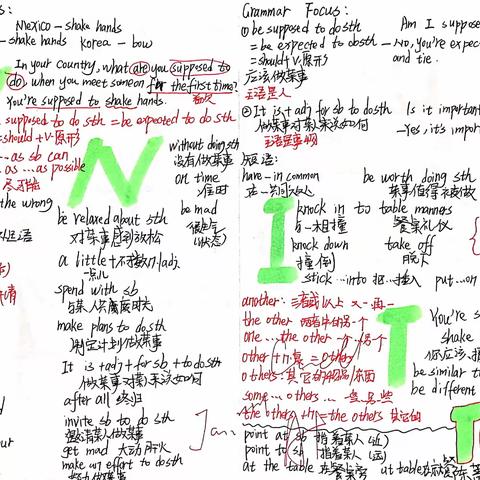 Mexico - shake hands
shake hands Korea - bow
In your country, what are you supposed to
do when you meet someon for the first time?
首次
You're supposed to shake hands.
supposed to do sth = be expected to do sth
= should + V-原形
... as sb can
as ... as possible
the wrong
without doing sth
没有做某事
on time
准时
be mad
很生气
(状态)
be relaxed about sth
对某事感到放松
a little + 不可数n./adj.
一点儿
spend with sb
与某人共度时光
make plans to do sth
制定计划做某事
It is + adj + for sb + to do sth
做某事对某人来说如何
after all 终归
invite sb to do sth
邀请某人做某事
get mad 大动肝火
make an effort to do sth
努力做某事
N
Jan.
Grammar Focus:
① be supposed to do sth
= be expected to do sth
= should + V原形
应该做某事
主语是人
Am I suppose
- No, you're expec
and tie.
② It is + adj for sb to do sth
做某事对某人来说如何
Is it important
- Yes, it's impor
短语:
have - in common
be worth doing sth
某事值得被做
I
knock in to
与-相撞
table manners
餐桌礼仪
knock down
撞倒
take off
脱下
stick ... into 把...插入
put ... on
another: 三者或以上 又一再一
the other 两者中的另一个
one ... the other 一个...另一个
other + n.复 = others
others: 其它的物品/东西
some ... others ... 一些另一些
the others + n = the others 其它的
T
You're s
shake
你应该
be similar to
be different
point at sb 指着某人 (近)
point to sb 指着某人 (远)
at the table 在餐桌旁
at table
T